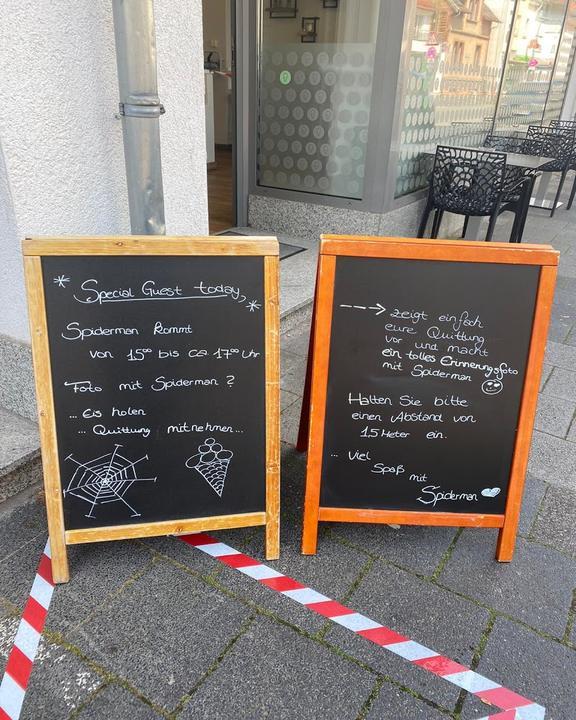 * Special Guest today *
Spiderman kommt
von 15⁰⁰ bis ca. 17⁰⁰ Uhr
Foto mit Spiderman ?
... Eis holen
... Quittung mitnehmen...
→ Zeigt einfach
eure Quittung
vor und macht
ein tolles Erinnerungsfoto
mit Spiderman
Halten Sie bitte
einen Abstand von
1.5 Meter ein.
... Viel
Spaß
mit
Spiderman